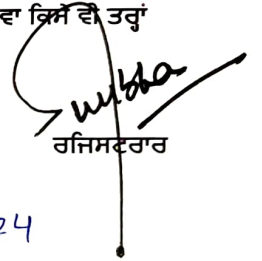 ਵਾ ਕਿਸੇ ਵੀ ਤਰ੍ਹਾਂ
ਰਜਿਸਟਰਾਰ
24